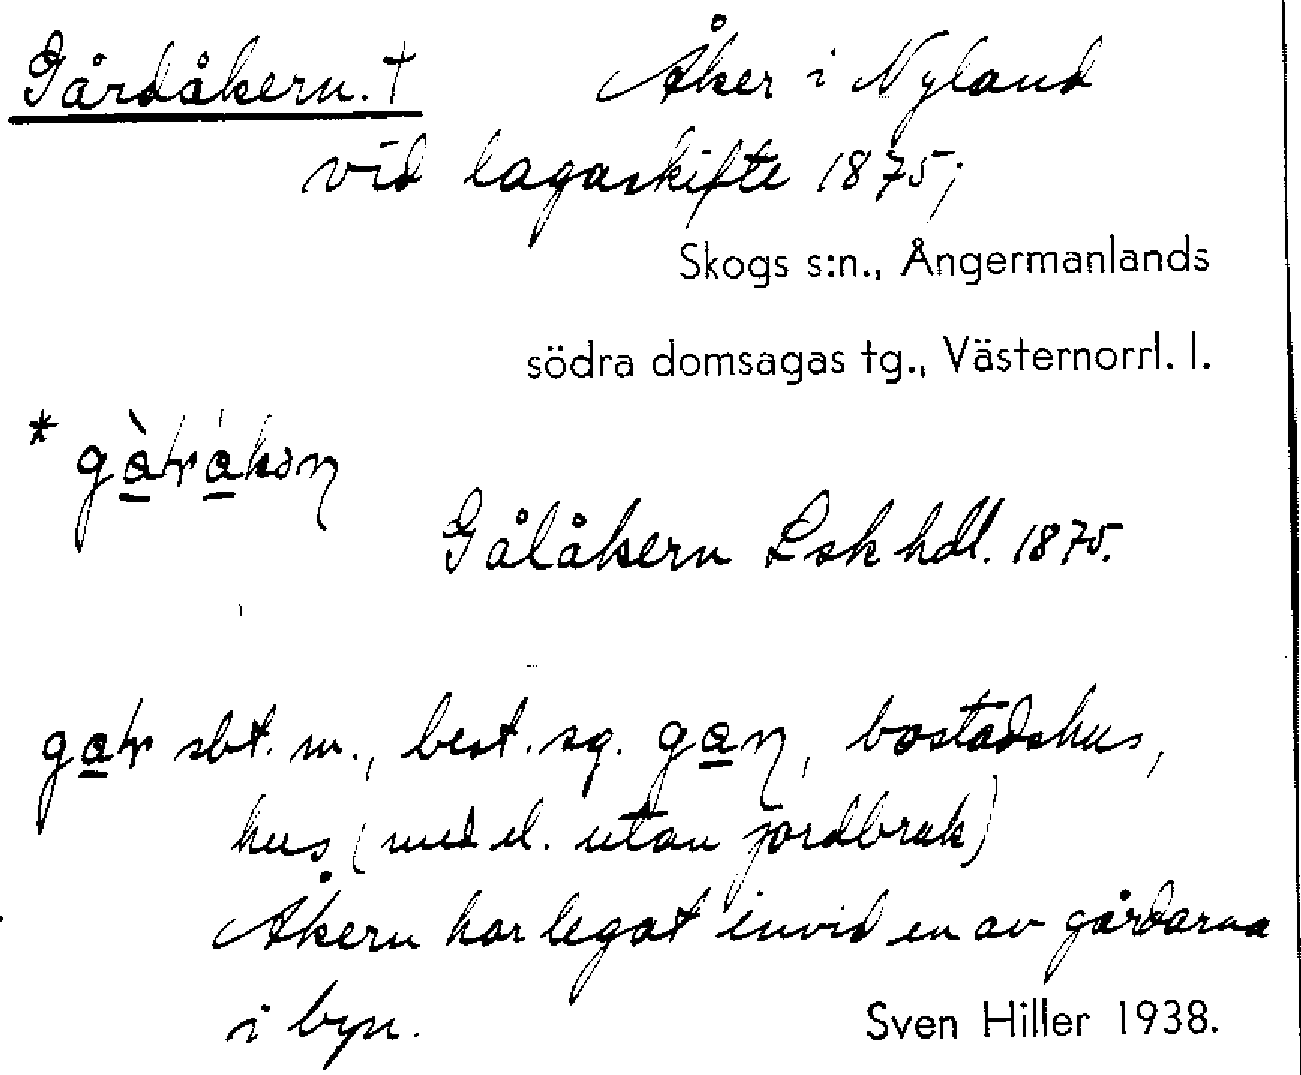 Gårdåkern. † Åker i Nyland
vid lagaskifte 1875;
Skogs s:n., Ångermanlands
södra domsagas tg., Västernorrl. l.
Gålåkern Lsk hdl. 1875.
sbt. m., best. sg. bostadshus,
hus (med el. utan jordbruk)
Åkern har legat invid en av gårdarna
i byn.
Sven Hiller 1938.